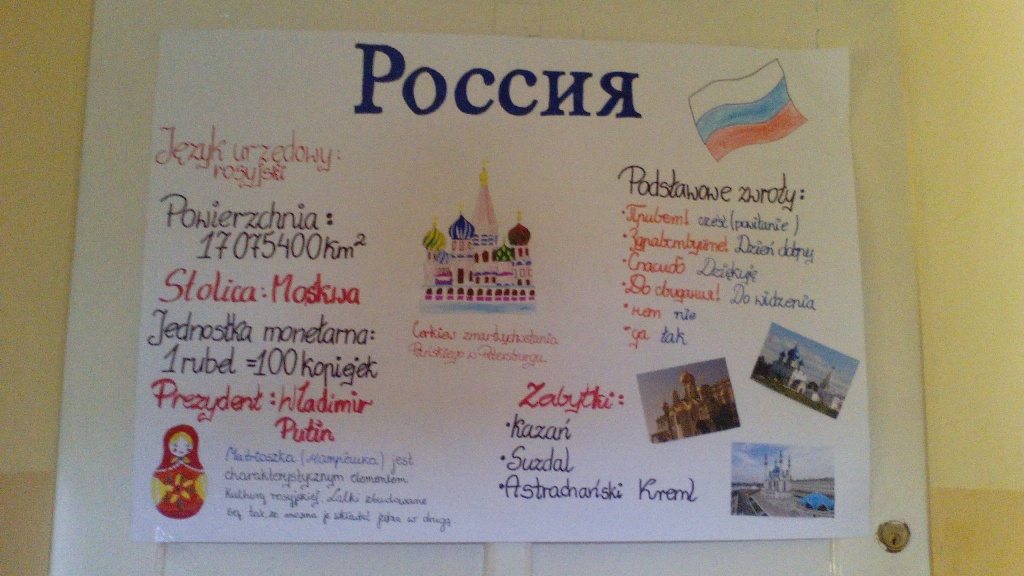 Россия
Język urzędowy:
rosyjski
Powierzchnia:
17075400km²
Stolica: Moskwa
Jednostka monetarna:
1 rubel =100 kopiejek
Prezydent: Władimir
Putin
Matrioszka (матрёшка) jest
charakterystycznym elementem
kultury rosyjskiej. Lalki zbudowane
są tak, że można je wkładać jedna w drugą
Cerkiew zmartwychwstania
Pańskiego w Petersburgu.
Podstawowe zwroty:
• Привет! cześć (powitanie)
• Здравствуйте! Dzień dobry
• Спасибо Dziękuję
• До свидания! Do widzenia
• нет nie
• да tak
Zabytki:
• Kazań
• Suzdal
• Astrachański Kreml